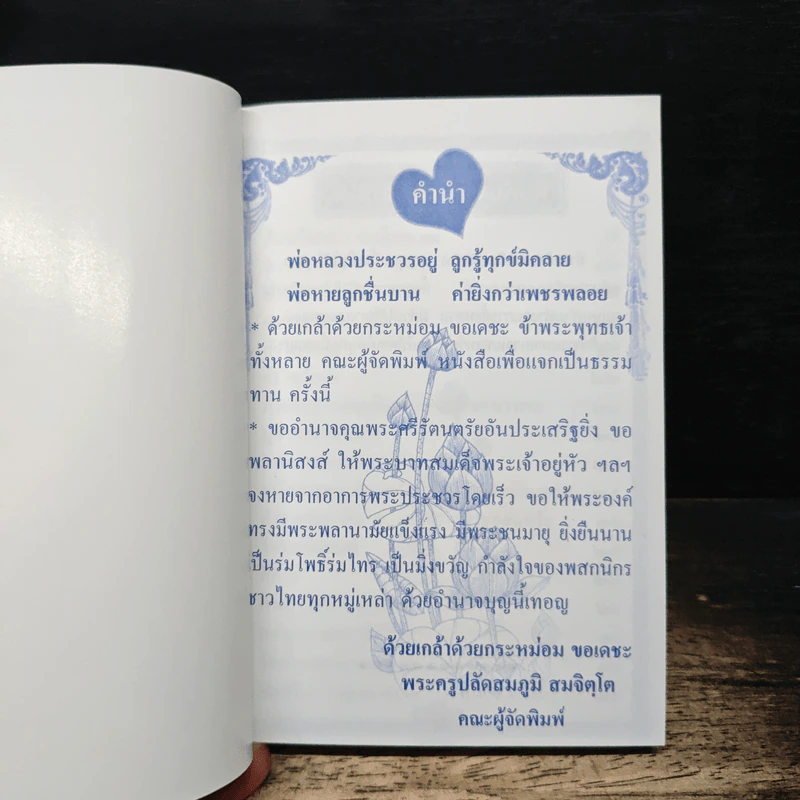 คำนำ
พ่อหลวงประชวรอยู่ ลูกรู้ทุกข์มิคลาย
พ่อหายลูกชื่นบาน ค่ายิ่งกว่าเพชรพลอย
* ด้วยเกล้าด้วยกระหม่อม ขอเดชะ ข้าพระพุทธเจ้า
ทั้งหลาย คณะผู้จัดพิมพ์ หนังสือเพื่อแจกเป็นธรรม
ทาน ครั้งนี้
* ขออำนาจคุณพระศรีรัตนตรัยอันประเสริฐยิ่ง ขอ
พลานิสงส์ ให้พระบาทสมเด็จพระเจ้าอยู่หัว ฯลฯ
จงหายจากอาการพระประชวรโดยเร็ว ขอให้พระองค์
ทรงมีพระพลานามัยแข็งแรง มีพระชนมายุ ยิ่งยืนนาน
เป็นร่มโพธิ์ร่มไทร เป็นมิ่งขวัญ กำลังใจของพสกนิกร
ชาวไทยทุกหมู่เหล่า ด้วยอำนาจบุญนี้เทอญ
ด้วยเกล้าด้วยกระหม่อม ขอเดชะ
พระครูปลัดสมภูมิ สมจิตฺโต
คณะผู้จัดพิมพ์